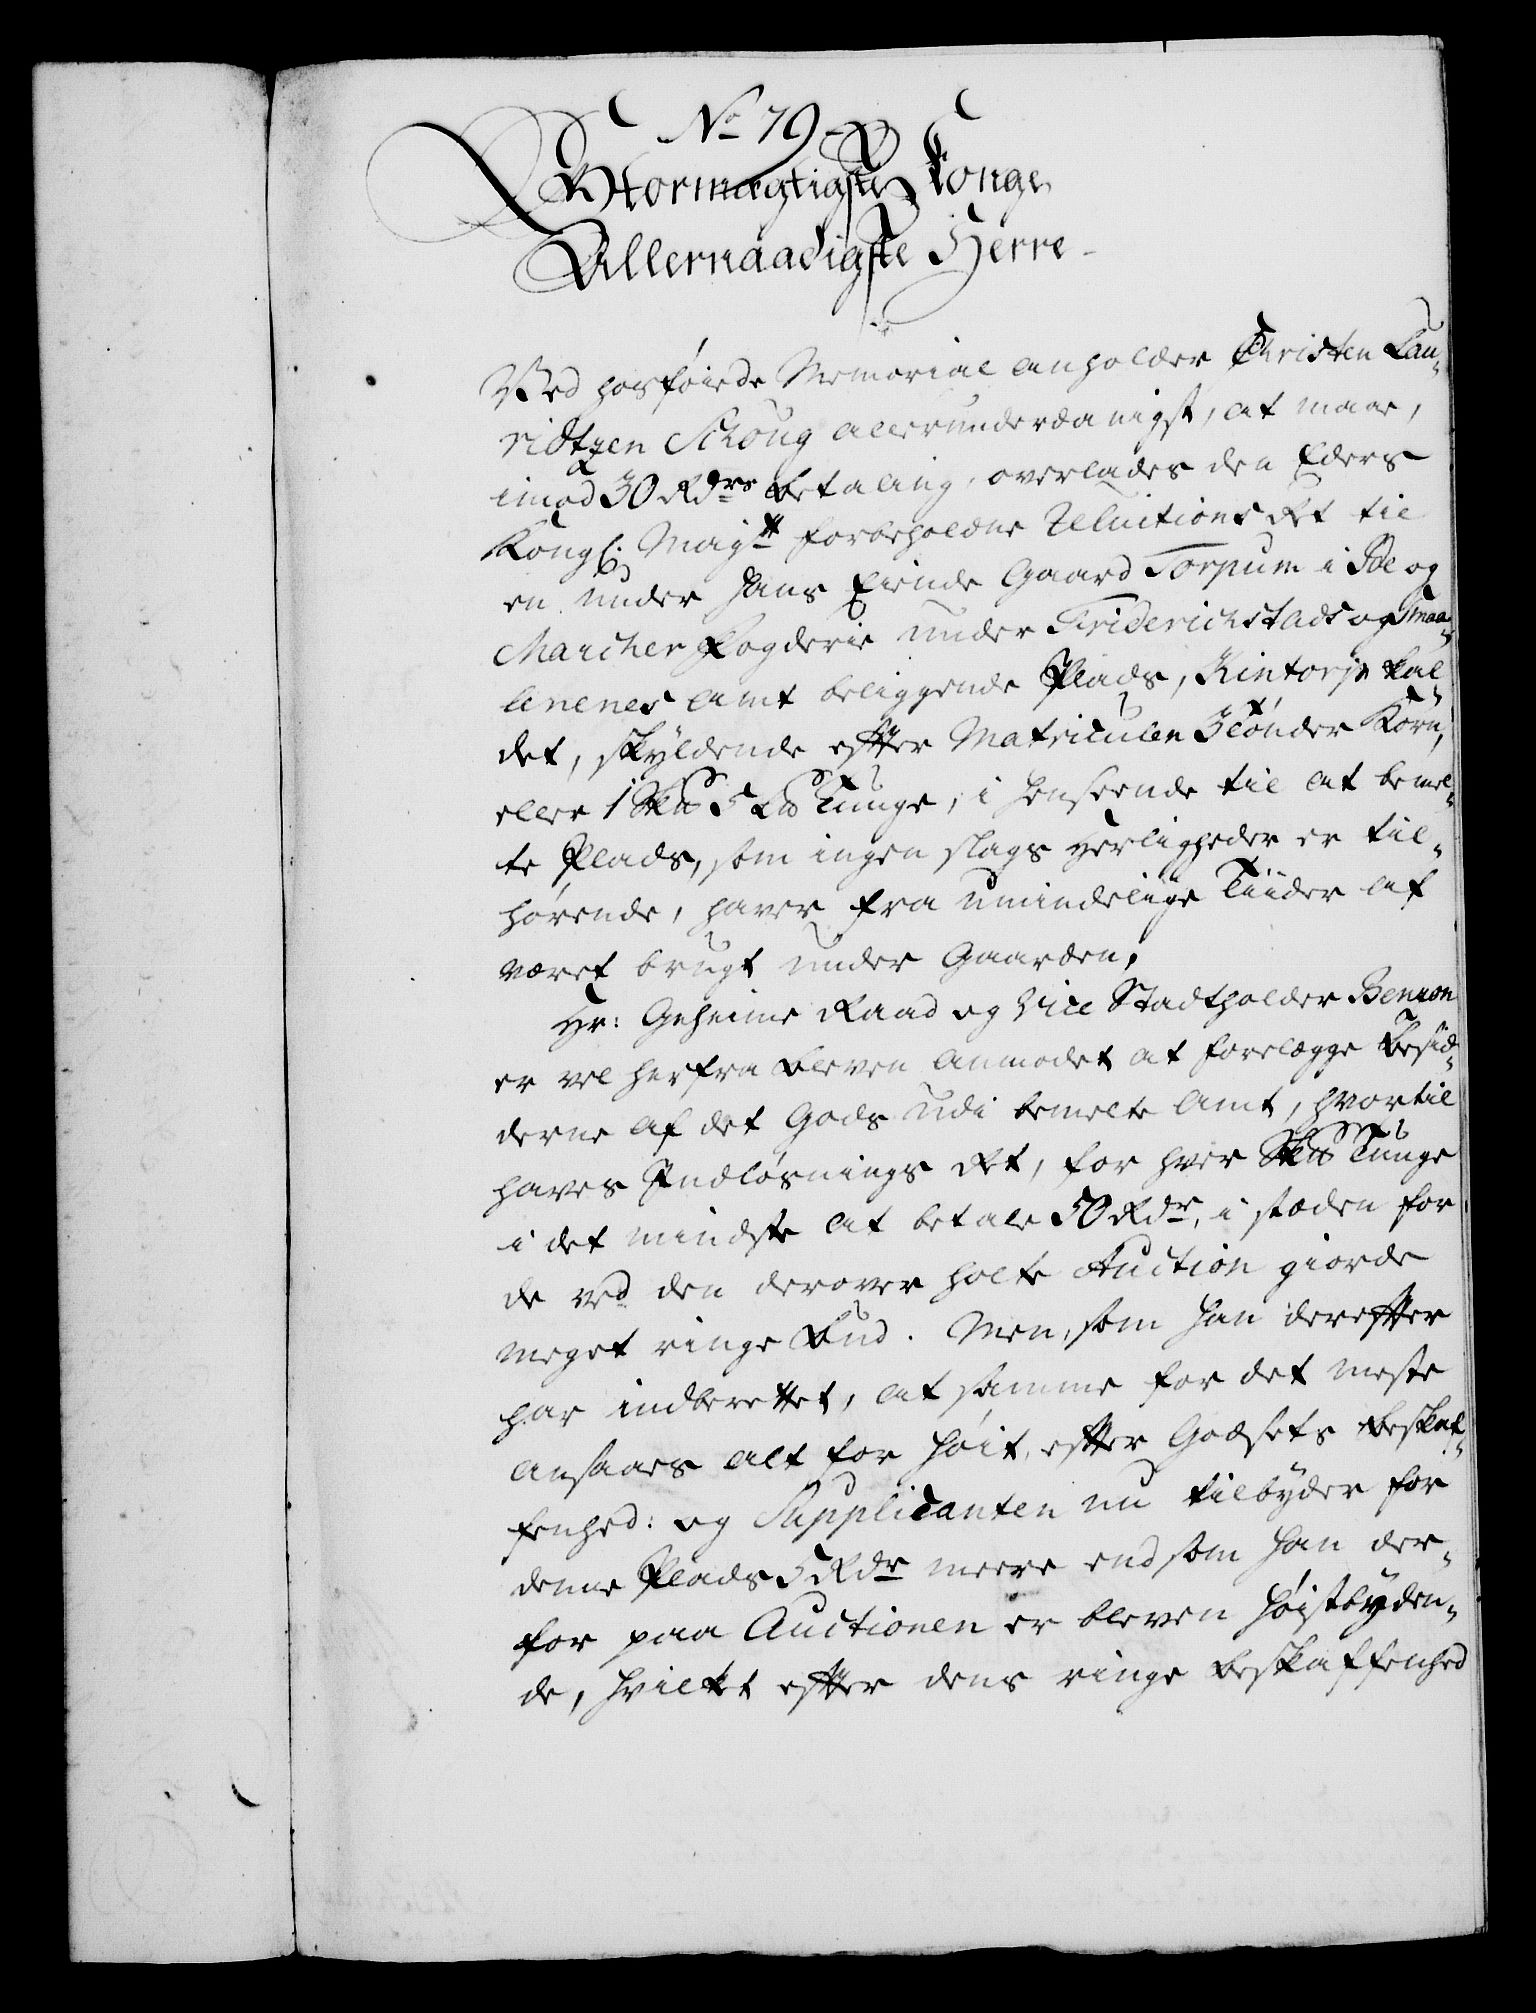 No 79
Stormægtigste Konge
Allernaadigste Herre
Ved hosføiede Memorial anholder Christen Lau-
ridtzen Schoug allerunderdanigst, at maae,
imod 30 Rdrs betaling, overlades den Eders
Kongl: Mayst: forbeholdne Reluitions Ret til
en under hans Eiende Gaard Torpum i Ide og
Marcher Fogderie under Friderichstads og Smaa-
lenenes Amt beliggende Plads, Kintorp kal-
det, skyldende efter Matriculen 3 tønder Korn,
eller 1 Sk℔ 5 L℔ Tunge, i henseende til at bemel-
te Plads, som ingen slags Herligheder er til-
hørende, haver fra umindelige Tiider af
været brugt under Gaarden.
Hr: Geheime Raad og Vice Stadtholder Benzon
er vel herfra bleven anmodet at forelægge Besid-
derne af det Gods udi bemelte Amt, hvortil
haves Indløsnings Ret, for hver Sk℔ Tunge
i det mindste at betale 50 Rdr, i stæden for
de ved den derover holte Auction giorde
meget ringe Bud. Men, som han derefter
har indberettet, at samme for det meste
ansaaes alt for høit, efter Godsets beskaf-
fenhed: og Supplicanten nu tilbyder for
denne Plads 5 Rdr meere end som han der-
for paa Auctionen er bleven høistbyden-
de, hvilket efter dens ringe beskaffenhed